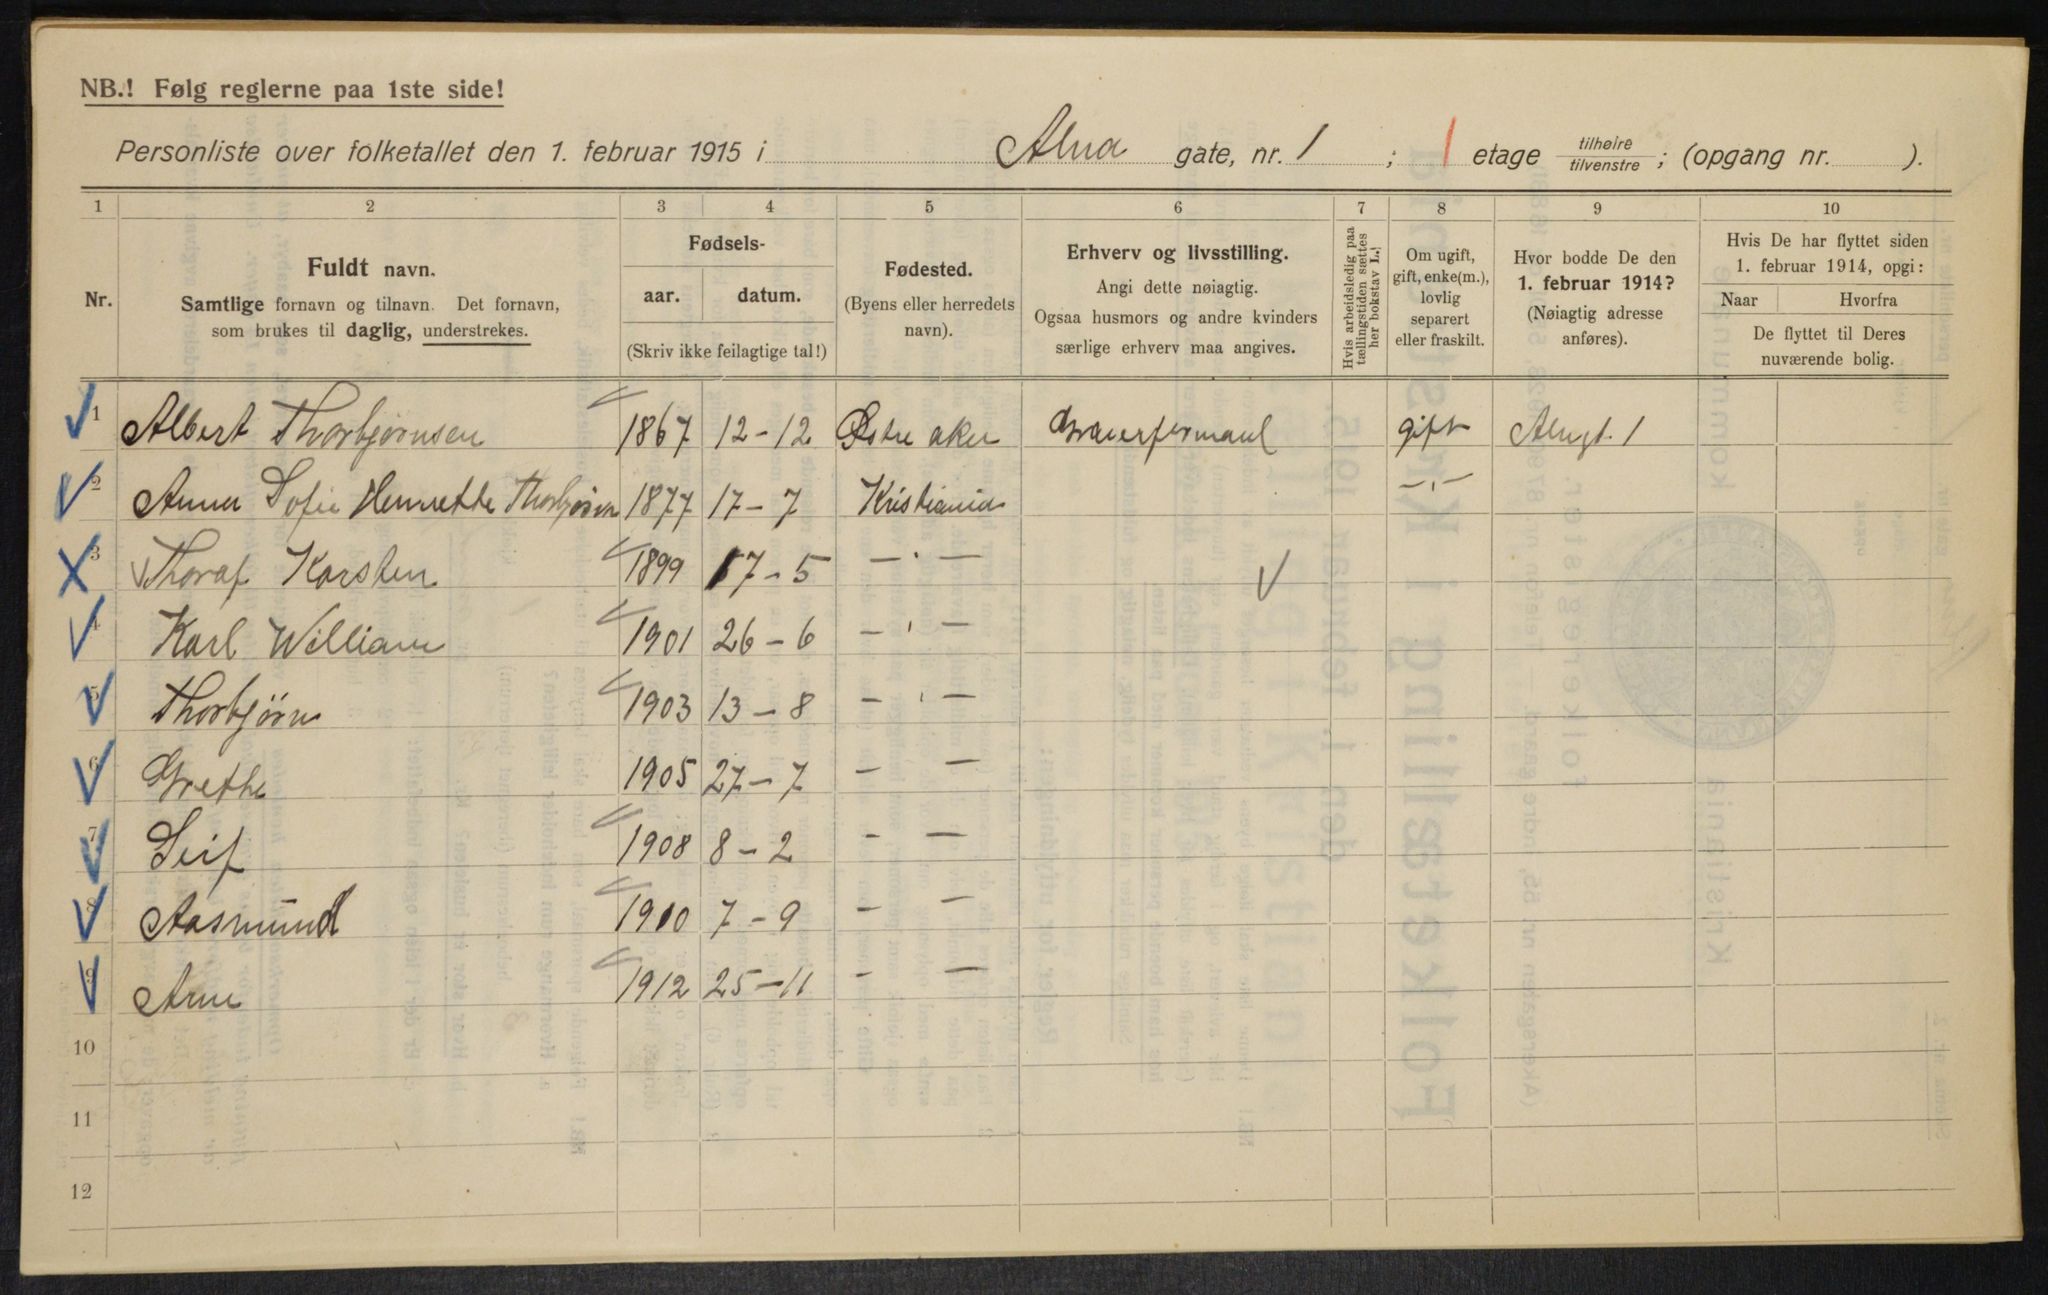 NB.! Følg reglerne paa 1ste side!
Personliste over folketallet den 1. februar 1915 i Alna gate, nr. 1 ; 1 etage tilhøire tilvenstre ; (opgang nr. ).
1 2 3 4 5 6 7 8 9 10
Nr.
Fuldt navn.
Samtlige fornavn og tilnavn. Det fornavn,
som brukes til daglig, understrekes.
Fødsels-
aar. datum.
(Skriv ikke feilagtige tal!)
Fødested.
(Byens eller herredets
navn).
Erhverv og livsstilling.
Angi dette nøiagtig.
Ogsaa husmors og andre kvinders
særlige erhverv maa angives.
Hvis arbeidsledig paa
tællingstiden sættes
her bokstav L.!
Om ugift,
gift, enke(m.),
lovlig
separert
eller fraskilt.
Hvor bodde De den
1. februar 1914?
(Nøiagtig adresse
anføres).
Hvis De har flyttet siden
1. februar 1914, opgi:
Naar Hvorfra
De flyttet til Deres
nuværende bolig.
1 Albert Thorbjørnsen 1867 12-12 Østre aker gift Alnagt. 1
2 Anna Sofie Henriette Thorbjørn 1877 17-7 Kristiania -"-
3 Thoraf Karsten 1899 17-5 -"-
4 Karl William 1901 26-6 -"-
5 Thorbjørn 1903 13-8 -"-
6 Grethe 1905 27-7 - -
7 Leif 1908 8-2 - -
8 Aasmund 1910 7-9 - -
9 Arne 1912 25-11 - -
10
11
12